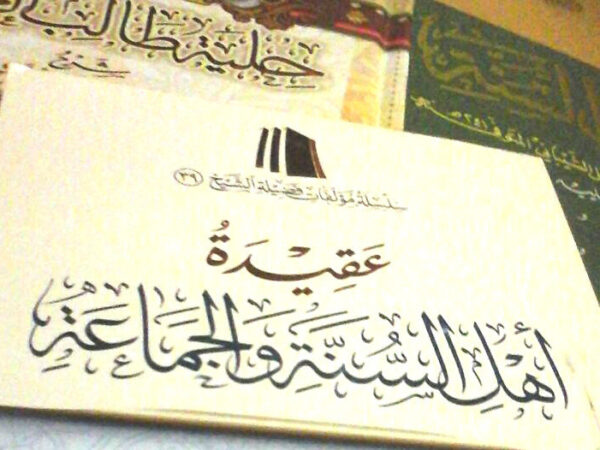 حلية طالب
شرح
سلسلة مؤلفات فضيلة الشيخ (٣٩)
عَقِيْدَةُ
أَهْلِ السُّنَّةِ وَالْجَمَاعَةِ